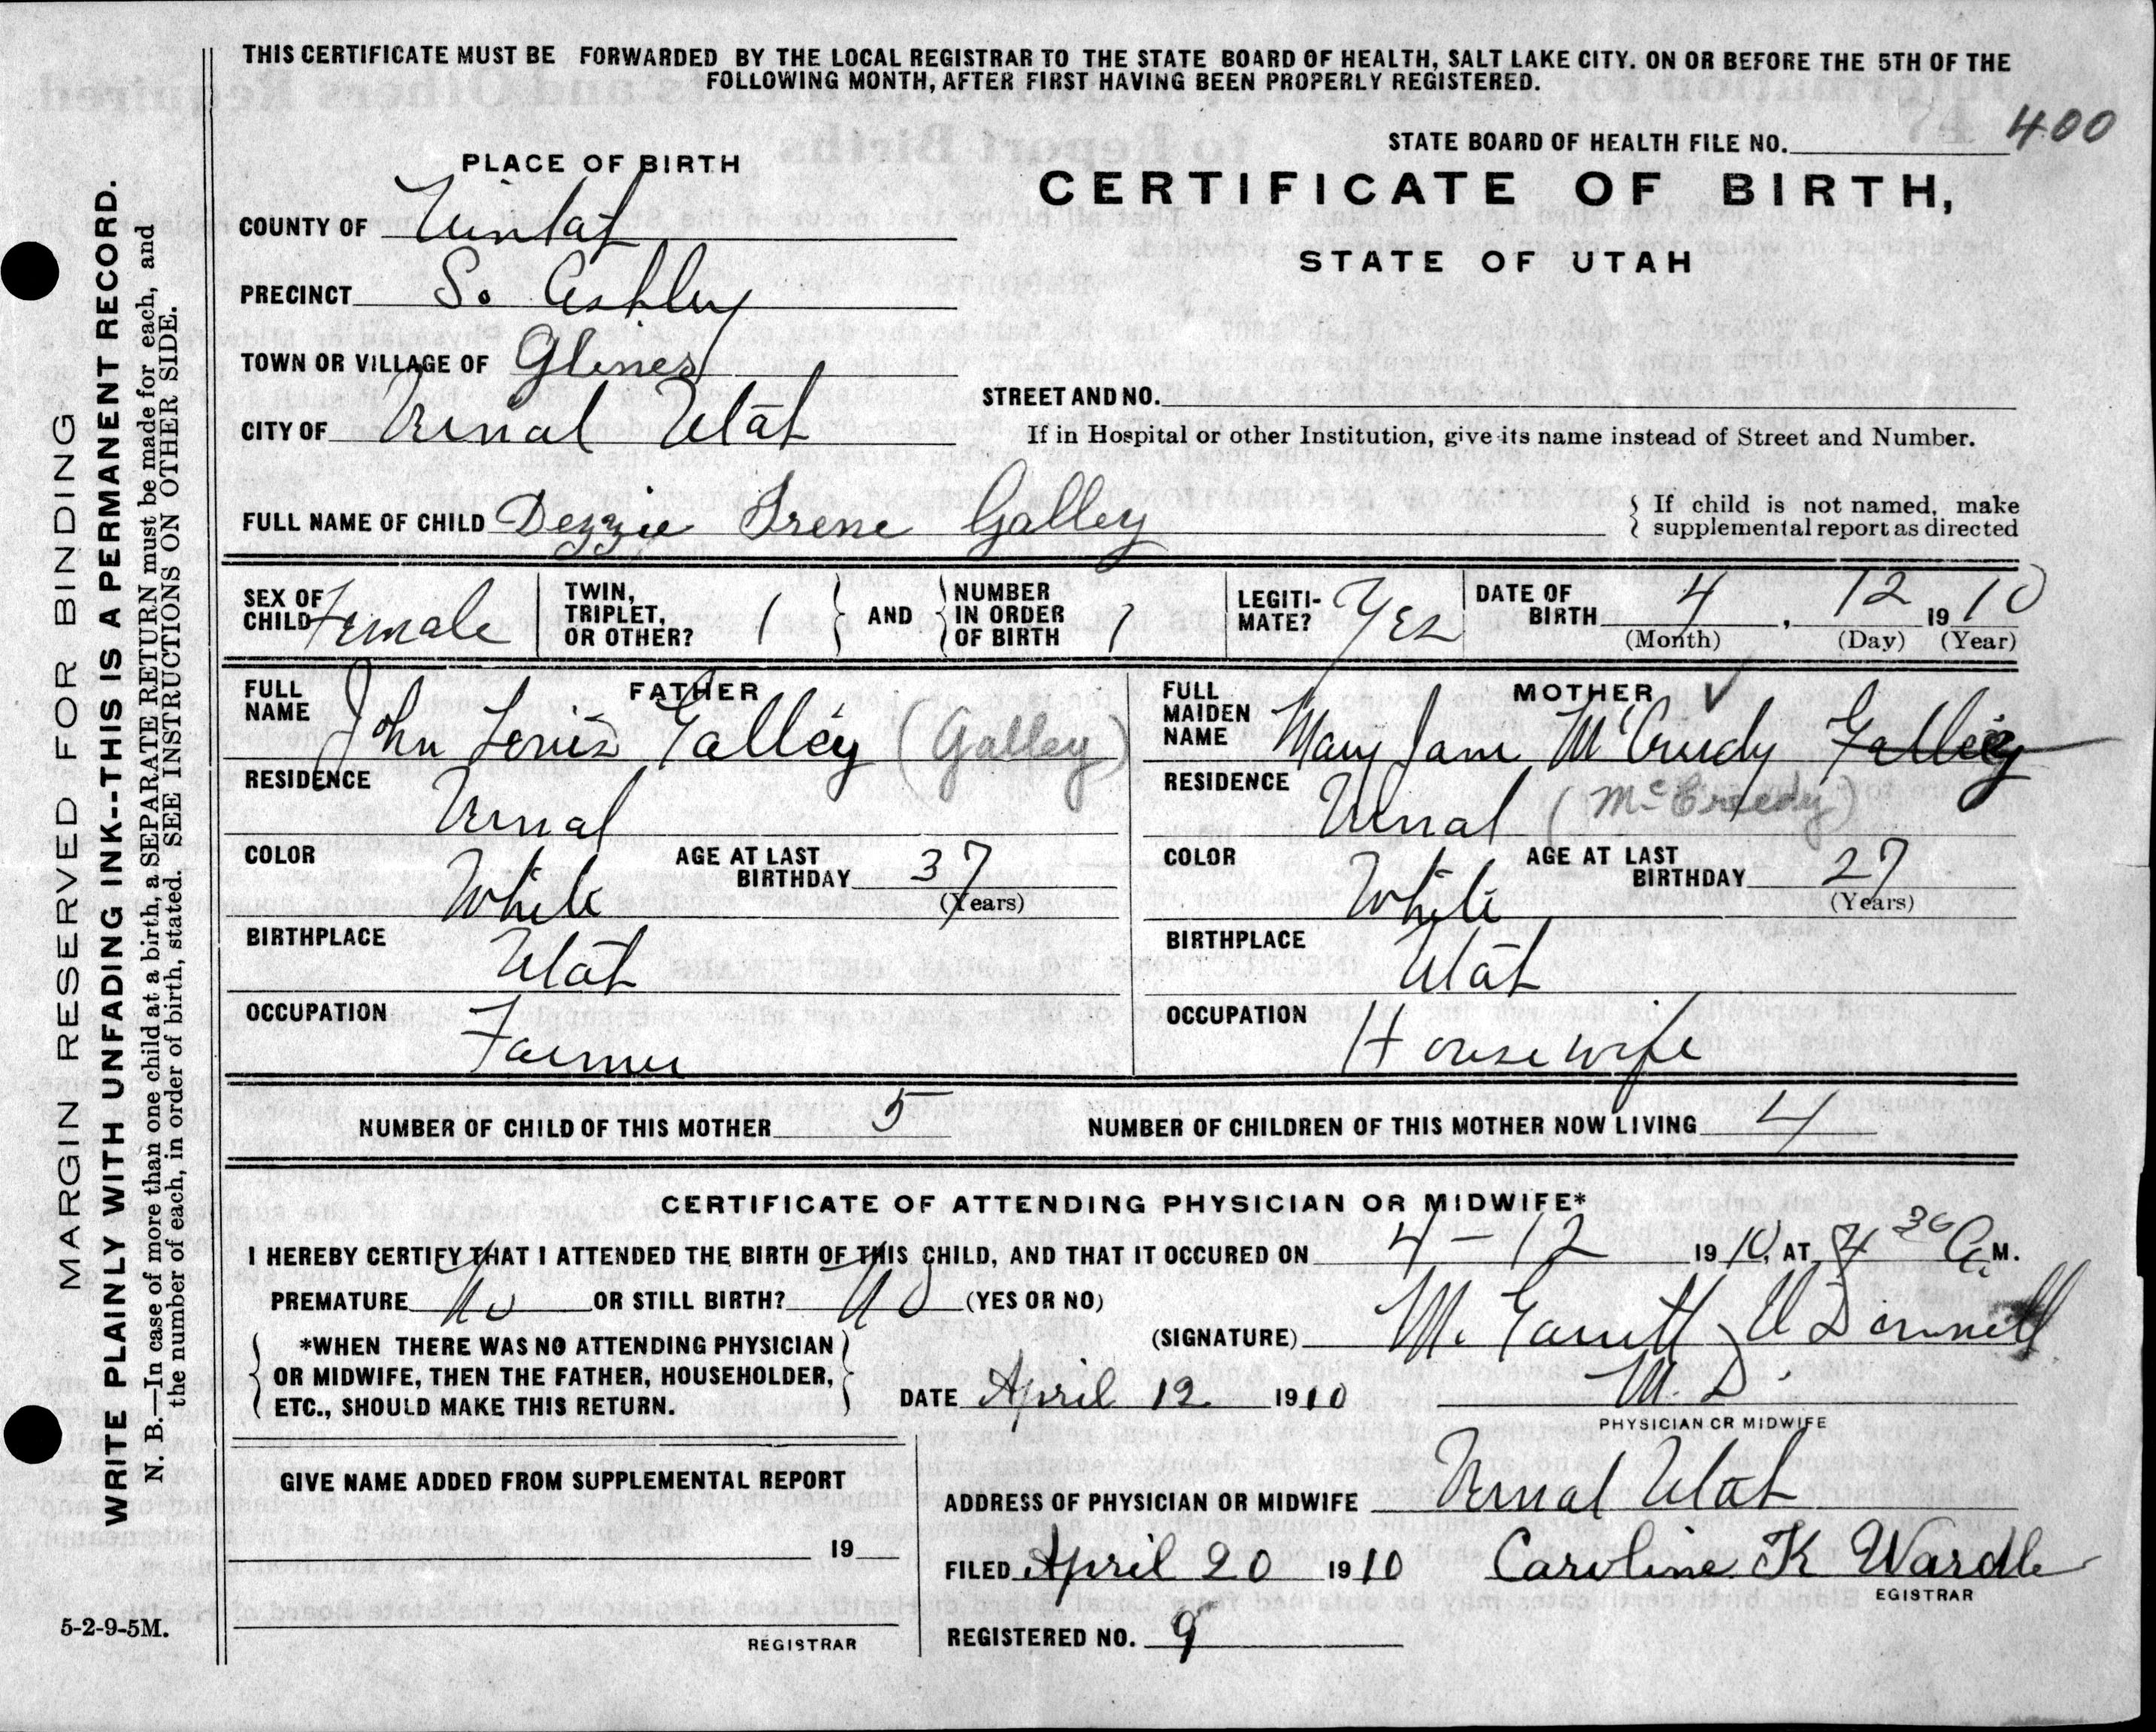 THIS CERTIFICATE MUST BE FORWARDED BY THE LOCAL REGISTRAR TO THE STATE BOARD OF HEALTH, SALT LAKE CITY. ON OR BEFORE THE 5TH OF THE
FOLLOWING MONTH, AFTER FIRST HAVING BEEN PROPERLY REGISTERED.
STATE BOARD OF HEALTH FILE NO. 400
PLACE OF BIRTH
CERTIFICATE OF BIRTH,
STATE OF UTAH
COUNTY OF Uintah
PRECINCT So Ashley
TOWN OR VILLAGE OF Glines
STREET AND NO.
CITY OF Vernal Utah
If in Hospital or other Institution, give its name instead of Street and Number.
FULL NAME OF CHILD Dezzie Irene Galley
{ If child is not named, make
supplemental report as directed
SEX OF CHILD Female
TWIN, TRIPLET, OR OTHER? 1 } AND { NUMBER IN ORDER OF BIRTH 1
LEGITI-MATE? Yes
DATE OF BIRTH 4, 12 1910
(Month) (Day) (Year)
FATHER
FULL NAME John Louis Galley (Galley)
RESIDENCE Vernal
COLOR White AGE AT LAST BIRTHDAY 37
(Years)
BIRTHPLACE Utah
OCCUPATION Farmer
MOTHER ✓
FULL MAIDEN NAME Mary Jane McCurdy Galley
RESIDENCE Vernal (McCreedy)
COLOR White AGE AT LAST BIRTHDAY 27
(Years)
BIRTHPLACE Utah
OCCUPATION Housewife
NUMBER OF CHILD OF THIS MOTHER 5 NUMBER OF CHILDREN OF THIS MOTHER NOW LIVING 4
CERTIFICATE OF ATTENDING PHYSICIAN OR MIDWIFE*
I HEREBY CERTIFY THAT I ATTENDED THE BIRTH OF THIS CHILD, AND THAT IT OCCURED ON 4-12 1910, AT 4 30 A. M.
PREMATURE No OR STILL BIRTH? No (YES OR NO)
{ *WHEN THERE WAS NO ATTENDING PHYSICIAN
OR MIDWIFE, THEN THE FATHER, HOUSEHOLDER,
ETC., SHOULD MAKE THIS RETURN. }
(SIGNATURE) M.
M. D.
PHYSICIAN OR MIDWIFE
DATE April 12 1910
GIVE NAME ADDED FROM SUPPLEMENTAL REPORT
19
REGISTRAR
ADDRESS OF PHYSICIAN OR MIDWIFE Vernal Utah
FILED April 20 1910 Caroline K Wardle
EGISTRAR
REGISTERED NO. 9
MARGIN RESERVED FOR BINDING
WRITE PLAINLY WITH UNFADING INK--THIS IS A PERMANENT RECORD.
N. B.—In case of more than one child at a birth, a SEPARATE RETURN must be made for each, and
the number of each, in order of birth, stated. SEE INSTRUCTIONS ON OTHER SIDE.
5-2-9-5M.